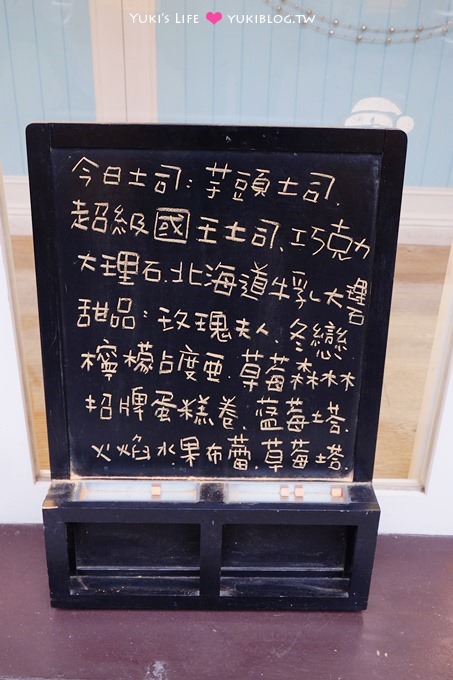 Yuki's Life ❤ yukiblog.tw
今日土司：芋頭土司.
超級國王土司、巧克力
大理石.北海道牛乳大理石
甜品：玫瑰夫人.冬戀
檸檬占度亜.草莓森林
招牌蛋糕卷.藍莓塔.
火焰水果布蕾.草莓塔.